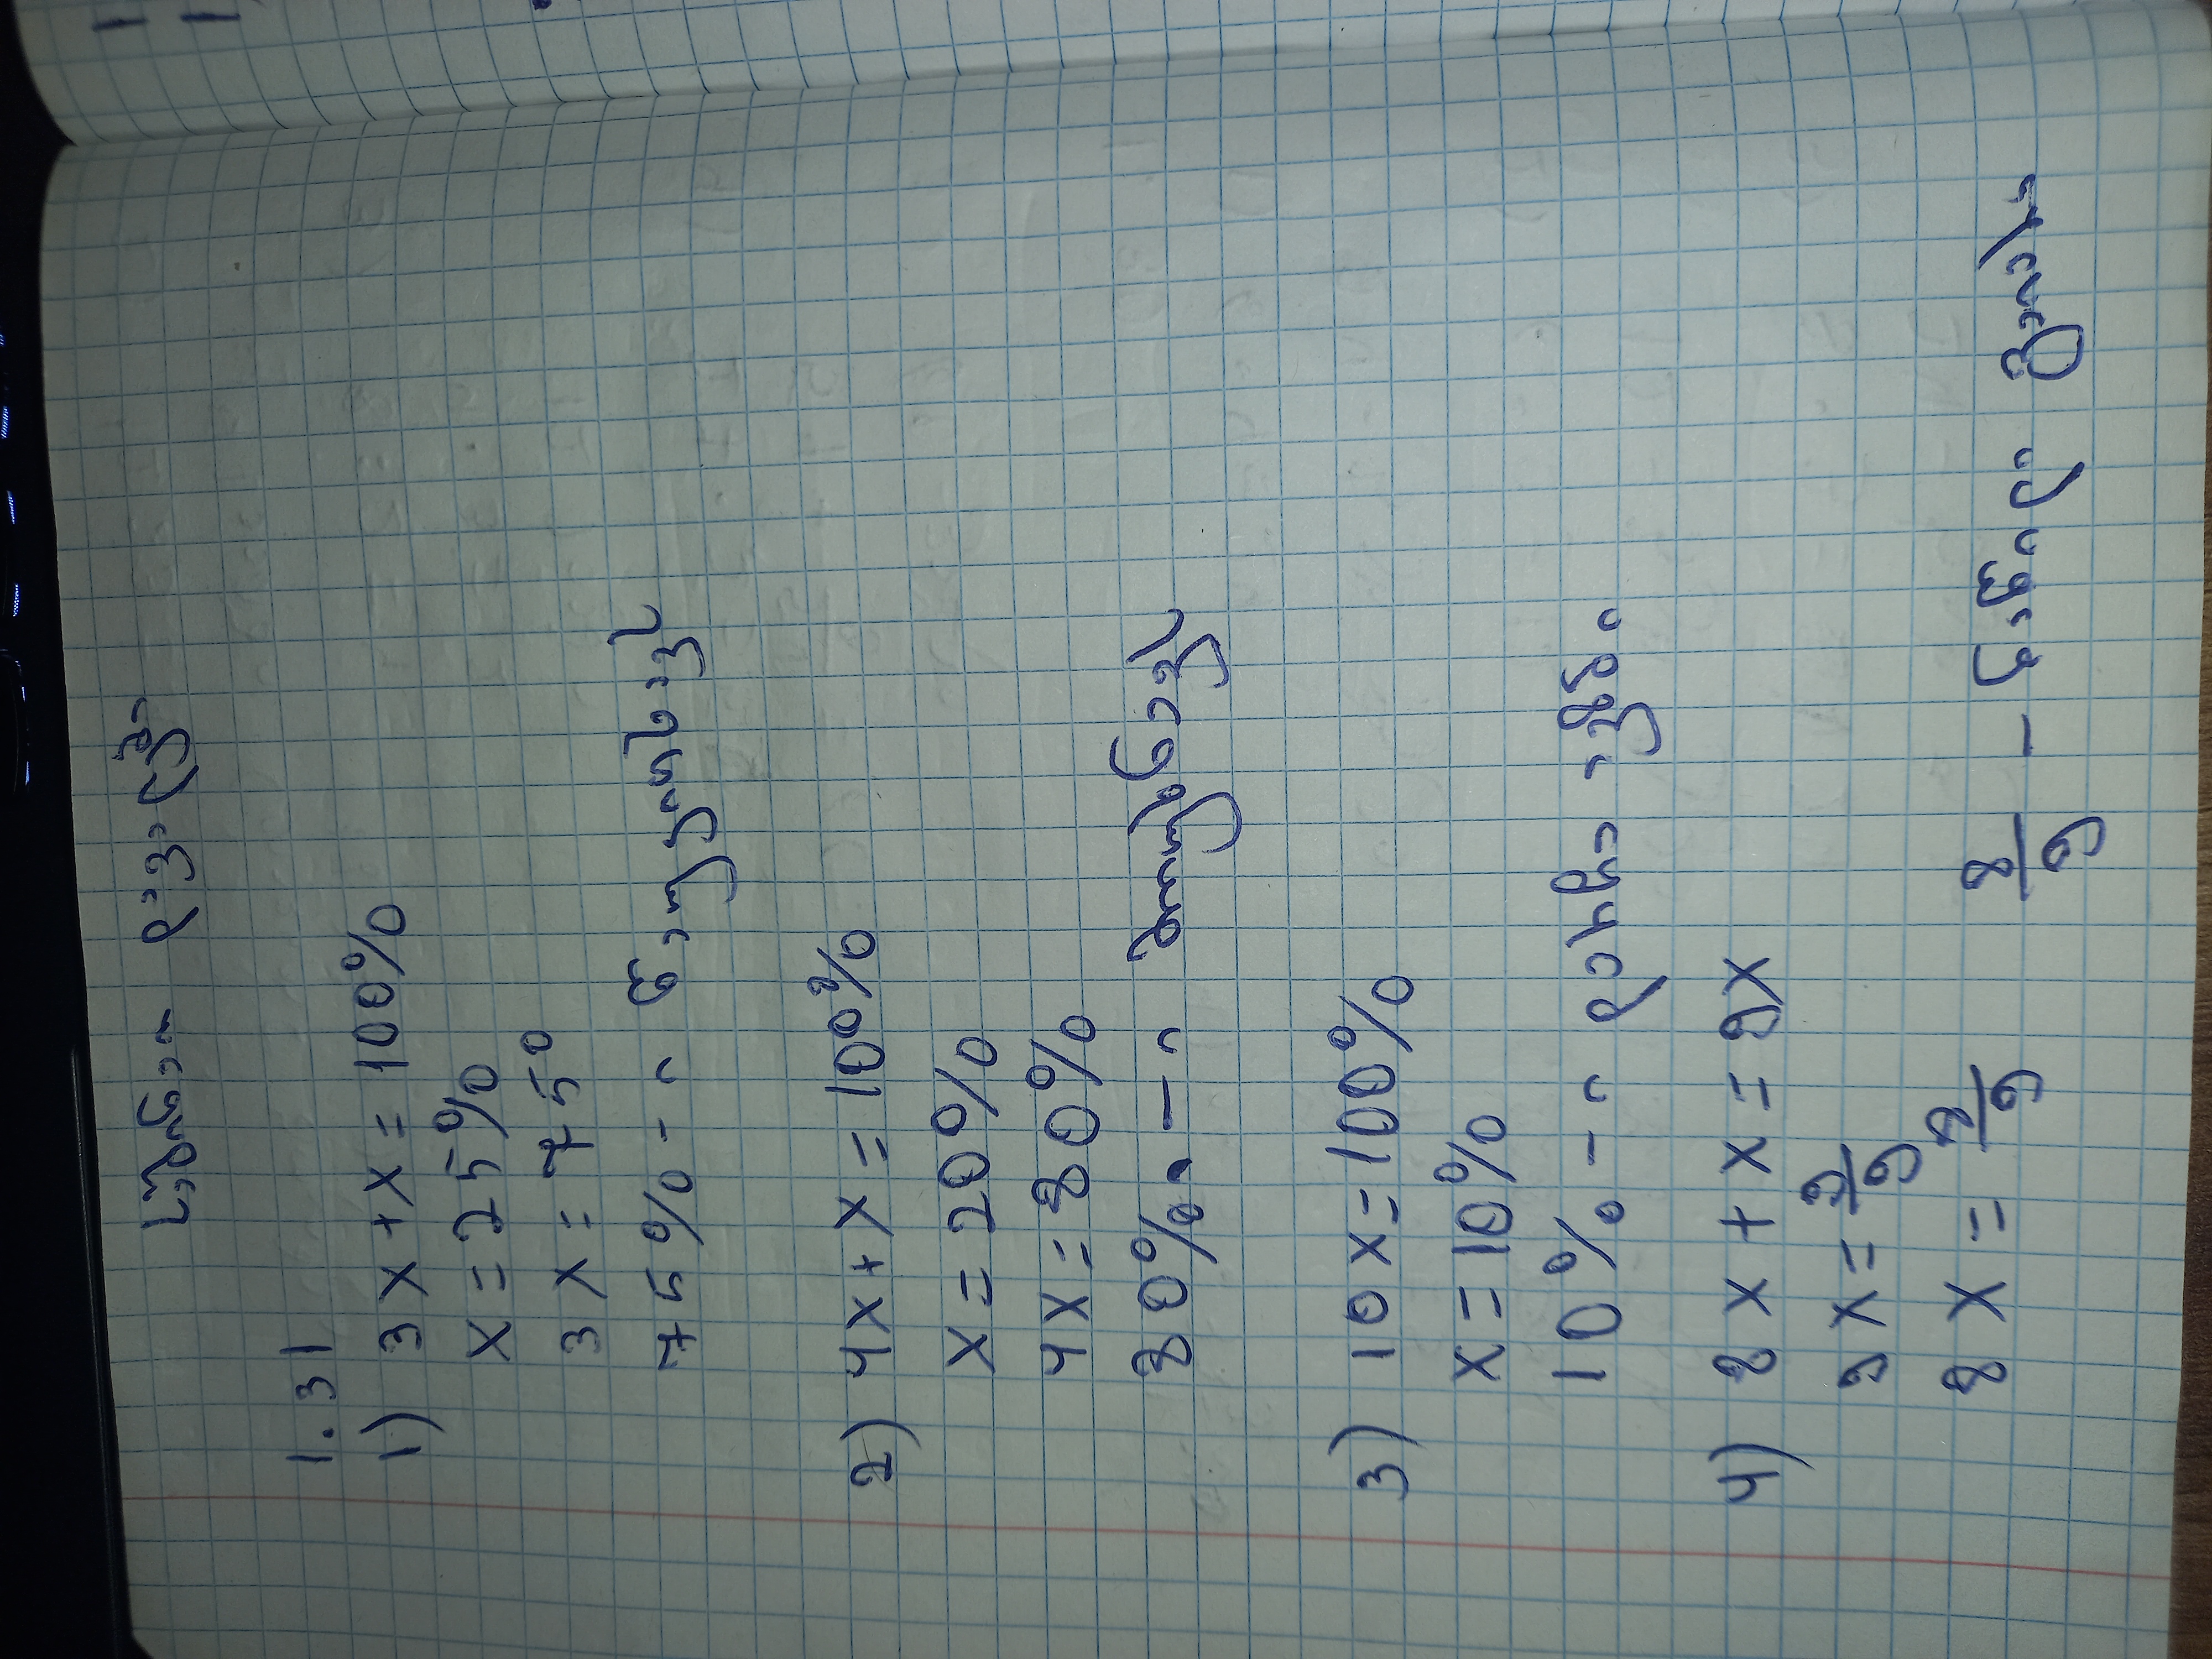 საშინაო დავალება
1.31
1) 3x+x=100%
x=25%
3x=75⁰
75%-ი წაუკითხავს
2) 4x+x=100%
x=20%
4x=80%
80%-ი მოუსწავლ
3) 10x=100%
x=10%
10%-ი დარჩა ავზში
4) 8x+x=9x
9x=9/9
8x=8/9 8/9 - ნაწილი გაიარა